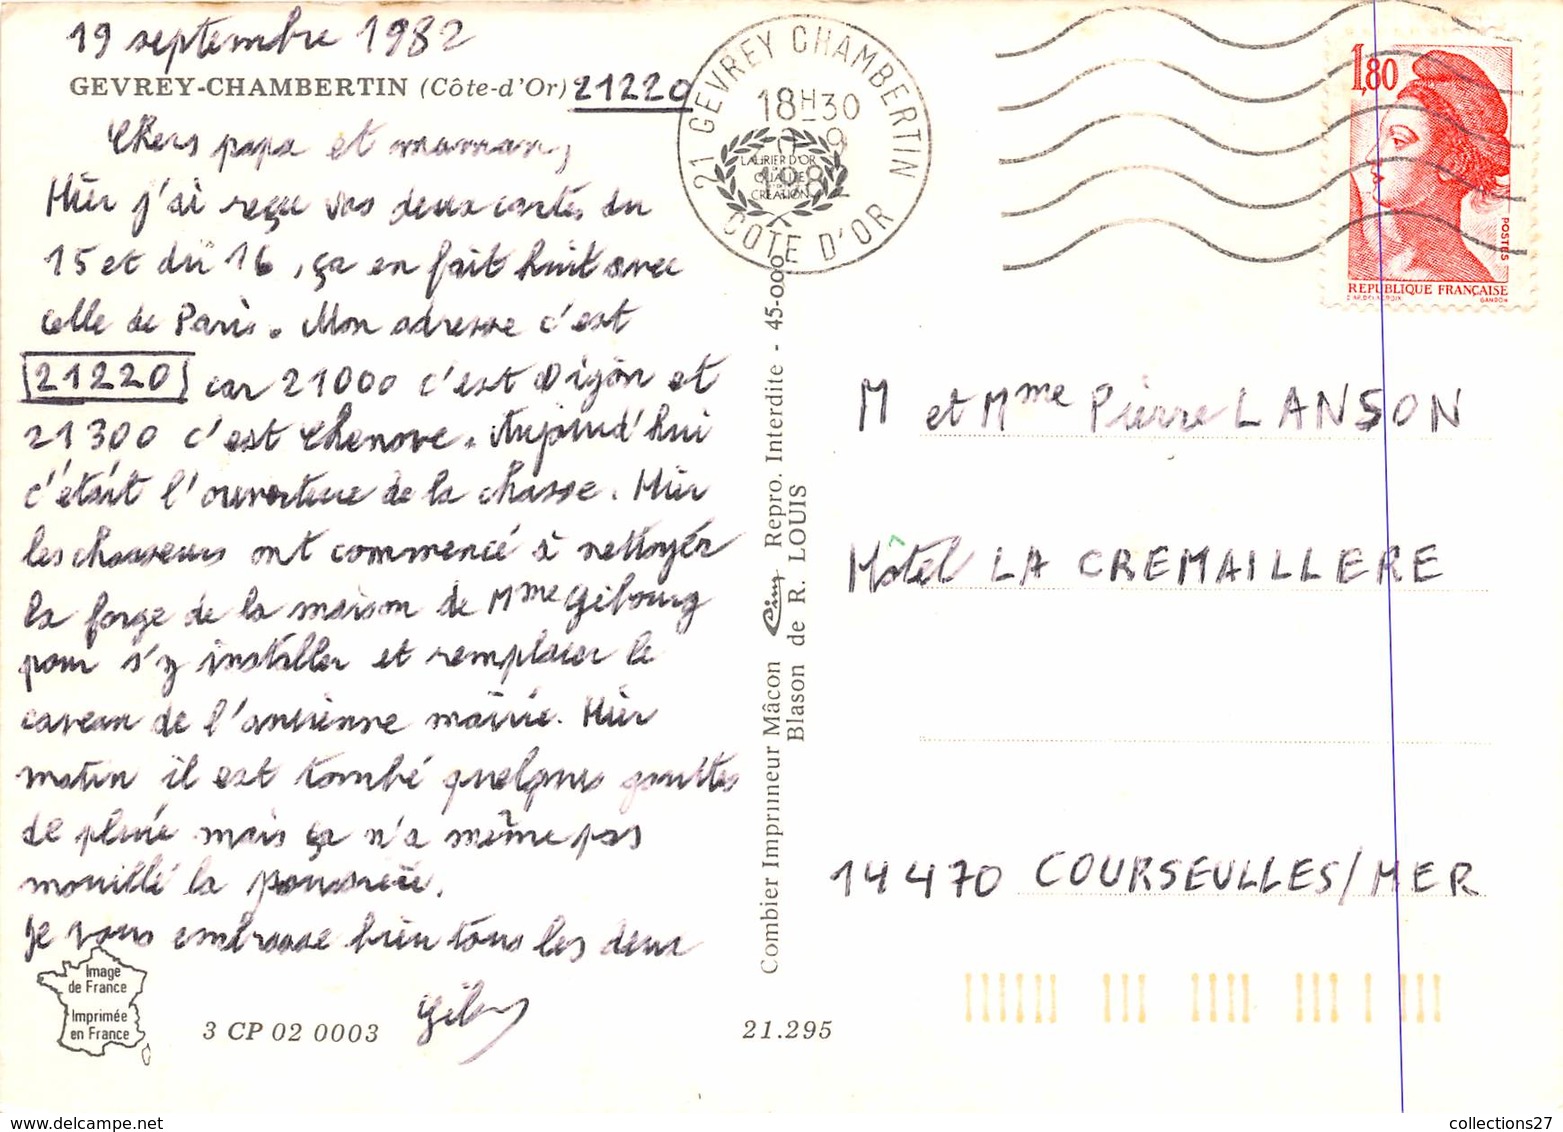 19 septembre 1982
GEVREY-CHAMBERTIN (Côte-d'Or) 21220
Chers papa et maman,
Hier j'ai reçu vos deux cartes du
15 et du 16, ça en fait huit avec
celle de Paris. Mon adresse c'est
21220 car 21000 c'est Dijon et
21300 c'est Chenove. Aujourd'hui
c'était l'ouverture de la chasse. Hier
les chasseurs ont commencé à nettoyer
la forge de la maison de Mme Gibourg
pour s'y installer et remplacer le
caveau de l'ancienne mairie. Hier
matin il est tombé quelques gouttes
de pluie mais ça n'a même pas
mouillé la poussière.
Je vous embrasse bien tous les deux
Image
de France
Imprimée
en France
3 CP 02 0003
21.295
Combier Imprimeur Mâcon Cim Repro. Interdite - 45-000
Blason de R. LOUIS
21 GEVREY CHAMBERTIN
18H30
9
1982
LAURIER D'OR
QUALITE
CREATION
COTE D'OR
1,80
POSTES
REPUBLIQUE FRANÇAISE
GANDON
M et Mme Pierre LANSON
Hôtel LA CREMAILLERE
14470 COURSEULLES/MER
collections27